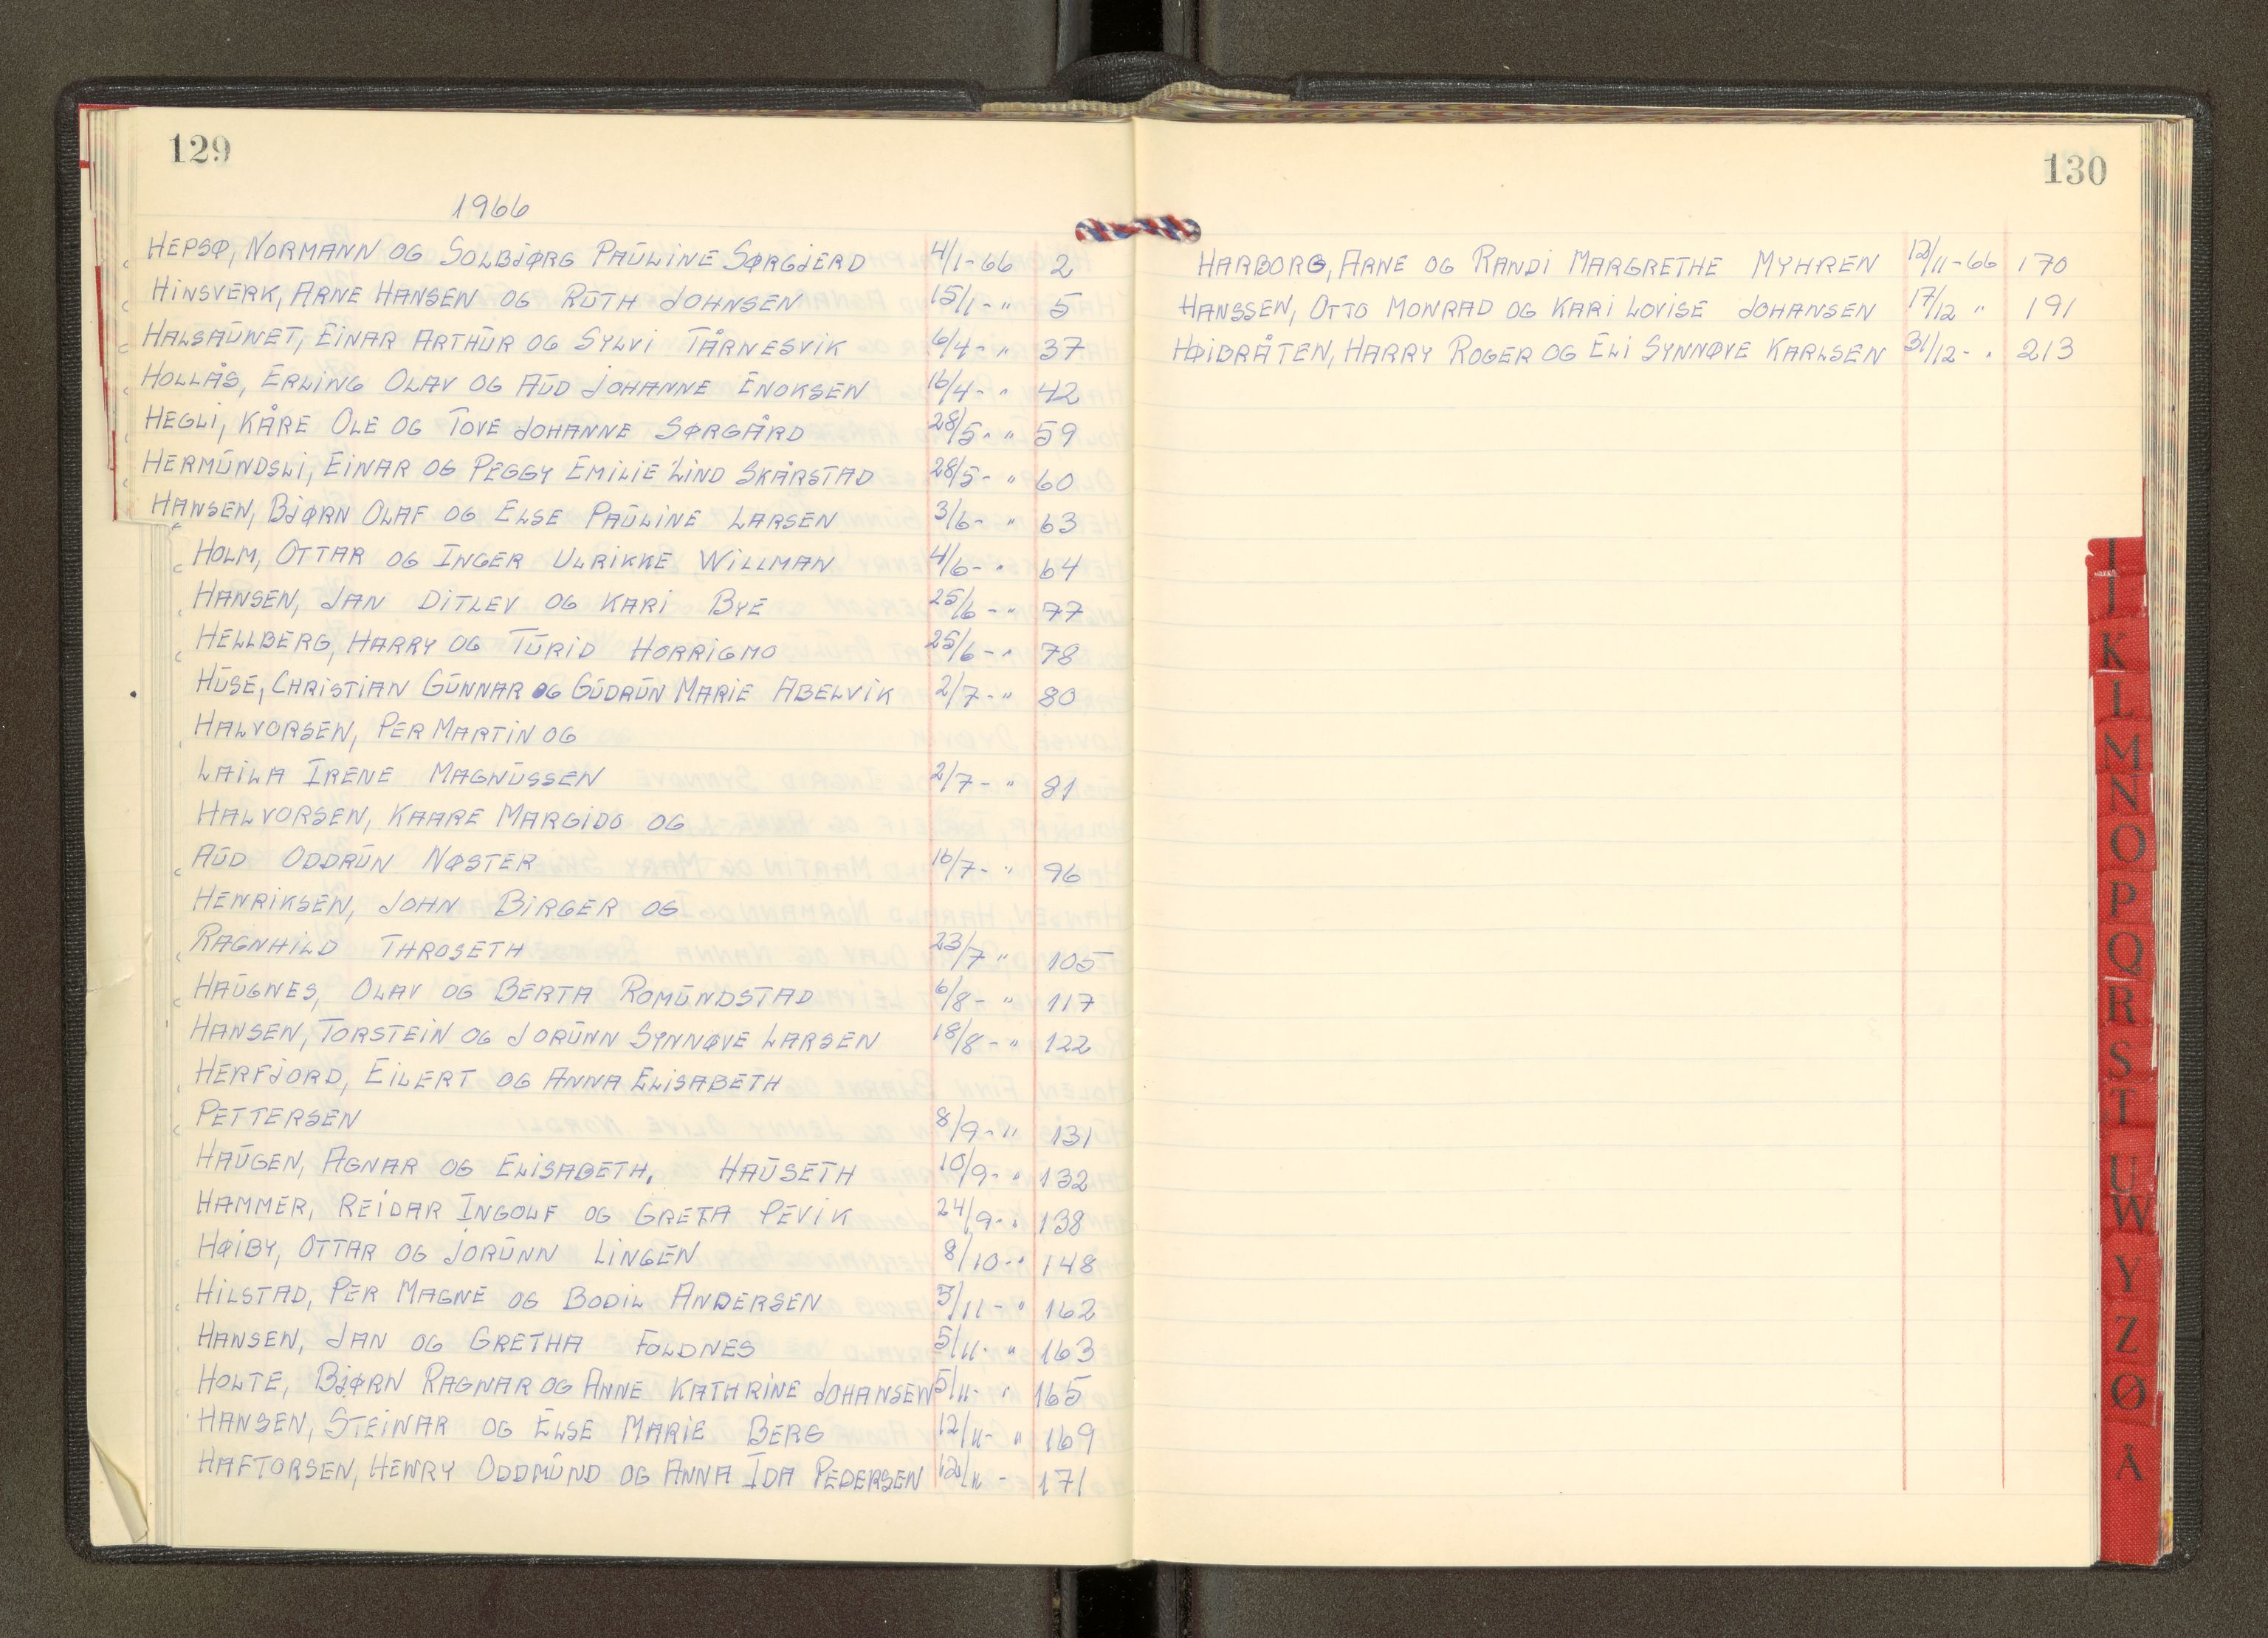 129
1966
HEPSØ, NORMANN OG SOLBJØRG PAULINE SØRGJERD 4/1-66 2
HINSVERK, ARNE HANSEN OG RUTH JOHNSEN 15/1- " 5
HALSAUNET, EINAR ARTHUR OG SYLVI TÅRNESVIK 6/4- " 37
HOLLÅS, ERLING OLAV OG AUD JOHANNE ENOKSEN 16/4- " 42
HEGLI, KÅRE OLE OG TOVE JOHANNE SØRGÅRD 28/5- " 59
HERMUNDSLI, EINAR OG PEGGY EMILIE LIND SKÅRSTAD 28/5- " 60
HANSEN, BJØRN OLAF OG ELSE PAULINE LARSEN 3/6- " 63
HOLM, OTTAR OG INGER ULRIKKE WILLMAN 4/6- " 64
HANSEN, JAN DITLEV OG KARI BYE 25/6- " 77
HELLBERG, HARRY OG TURID HORRIGMO 25/6- " 78
HUSE, CHRISTIAN GUNNAR OG GUDRUN MARIE ABELVIK 2/7- " 80
HALVORSEN, PER MARTIN OG
LAILA IRENE MAGNUSSEN 2/7- " 81
HALVORSEN, KAARE MARGIDO OG
AUD ODDRUN NØSTER 16/7- " 96
HENRIKSEN, JOHN BIRGER OG
RAGNHILD THROSETH 23/7 " 105
HAUGNES, OLAV OG BERTA ROMUNDSTAD 6/8- " 117
HANSEN, TORSTEIN OG JORUNN SYNNØVE LARSEN 18/8- " 122
HERFJORD, EILERT OG ANNA ELISABETH
PETTERSEN 8/9- " 131
HAUGEN, AGNAR OG ELISABETH. HAUSETH 10/9- " 132
HAMMER, REIDAR INGOLF OG GRETA PEVIK 24/9- " 138
HØIBY, OTTAR OG JORUNN LINGEN 8/10- " 148
HILSTAD, PER MAGNE OG BODIL ANDERSEN 5/11- " 162
HANSEN, JAN OG GRETHA FOLDNES 5/11- " 163
HOLTE, BJØRN RAGNAR OG ANNE KATHRINE JOHANSEN 5/11- " 165
HANSEN, STEINAR OG ELSE MARIE BERG 12/11- " 169
HAFTORSEN, HENRY ODDMUND OG ANNA IDA PEDERSEN 12/11 - 171
130
HARBORG, ARNE OG RANDI MARGRETHE MYHREN 12/11-66 170
HANSSEN, OTTO MONRAD OG KARI LOVISE JOHANSEN 17/12 " 191
HØIBRÅTEN, HARRY ROGER OG ELI SYNNØVE KARLSEN 31/12- " 213
I
J
K
L
M
N
O
P
Q
R
S
T
U
W
Y
Z
Ø
Å